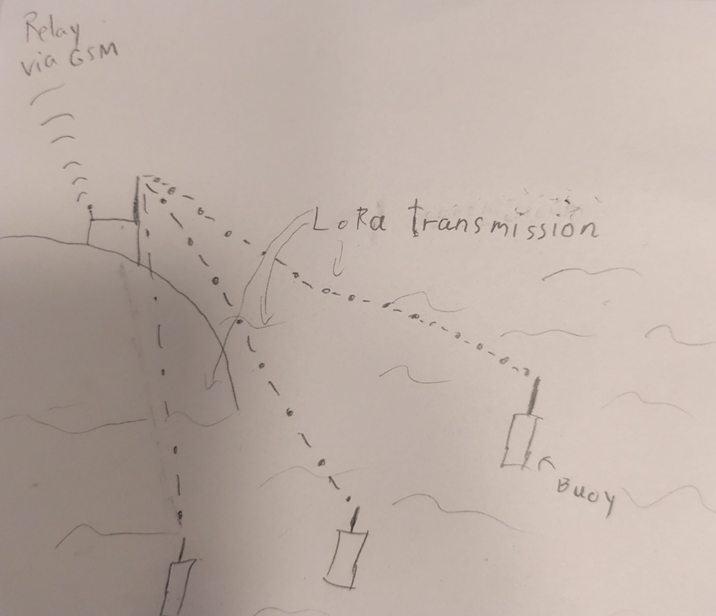 Relay
via GSM
LoRa transmission
Buoy